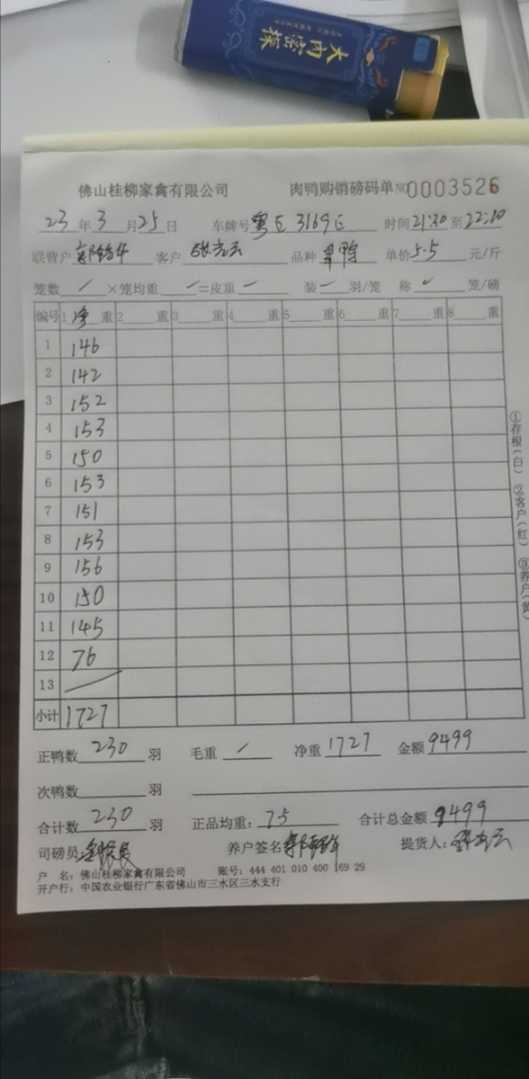 大内密探
佛山桂柳家禽有限公司 肉鸭购销磅码单 NO 0003526
23 年 3 月 25 日 车牌号 粤E 3169E 时间 21:30 至 22:10
联营户 客户 张志云 品种 鸭 单价 5.5 元/斤
笼数 / ×笼均重 / =皮重 一 装 一 羽/笼 称 ✓ 笼/磅
编号 1 净 重 2 重 3 重 4 重 5 重 6 重 7 重 8 重
1 146
2 142
3 152
4 153
5 150
6 153
7 151
8 153
9 156
10 150
11 145
12 76
13 /
小计 1727
正鸭数 230 羽 毛重 / 净重 1727 金额 9499
次鸭数 羽
合计数 230 羽 正品均重: 7.5 合计总金额 9499
司磅员: 养户签名 提货人:
户 名: 佛山桂柳家禽有限公司 账号: 444 401 010 400 169 29
开户行: 中国农业银行广东省佛山市三水区三水支行
①存根(白) ②客户(红) ③养户(黄)